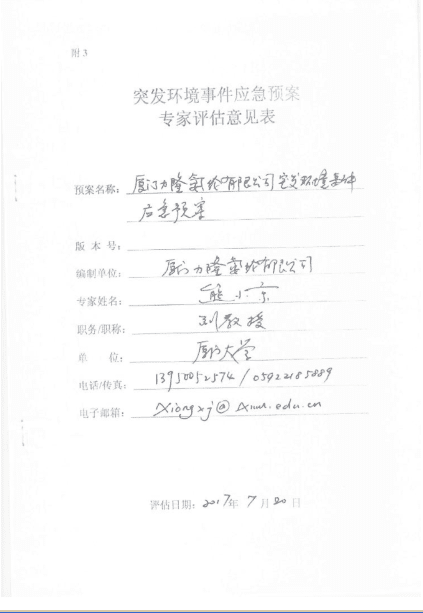 附3
突发环境事件应急预案
专家评估意见表
预案名称：厦门力隆氧化有限公司突发环境事件
应急预案
版本号：
编制单位：厦门力隆氧化有限公司
专家姓名：熊小京
职务/职称：副教授
单 位：厦门大学
电话/传真：13950052574 / 05922185889
电子邮箱：xiongxj@xmu.edu.cn
评估日期：2017年7月20日